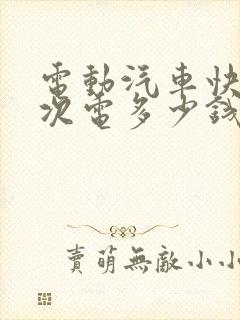 電動汽車快
次電多少錢
賣萌無敵小小